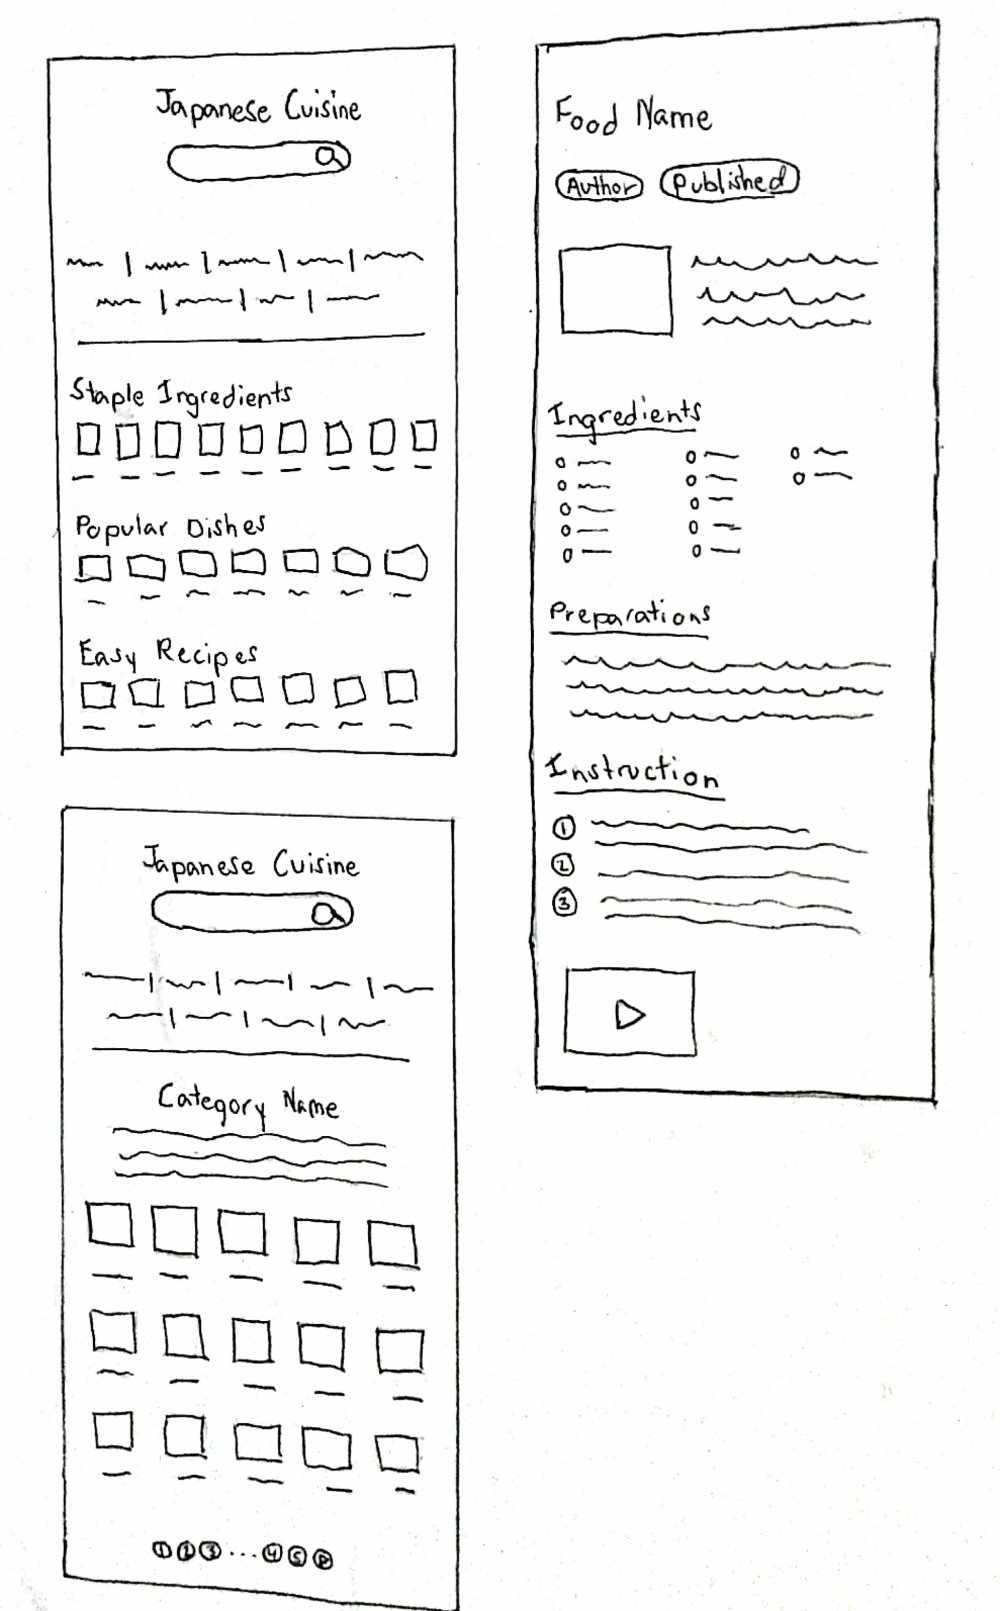 Japanese Cuisine
Staple Ingredients
Popular Dishes
Easy Recipes
Japanese Cuisine
Category Name
1 2 3 ... 4 5
Food Name
Author Published
Ingredients
Preparations
Instruction
1
2
3